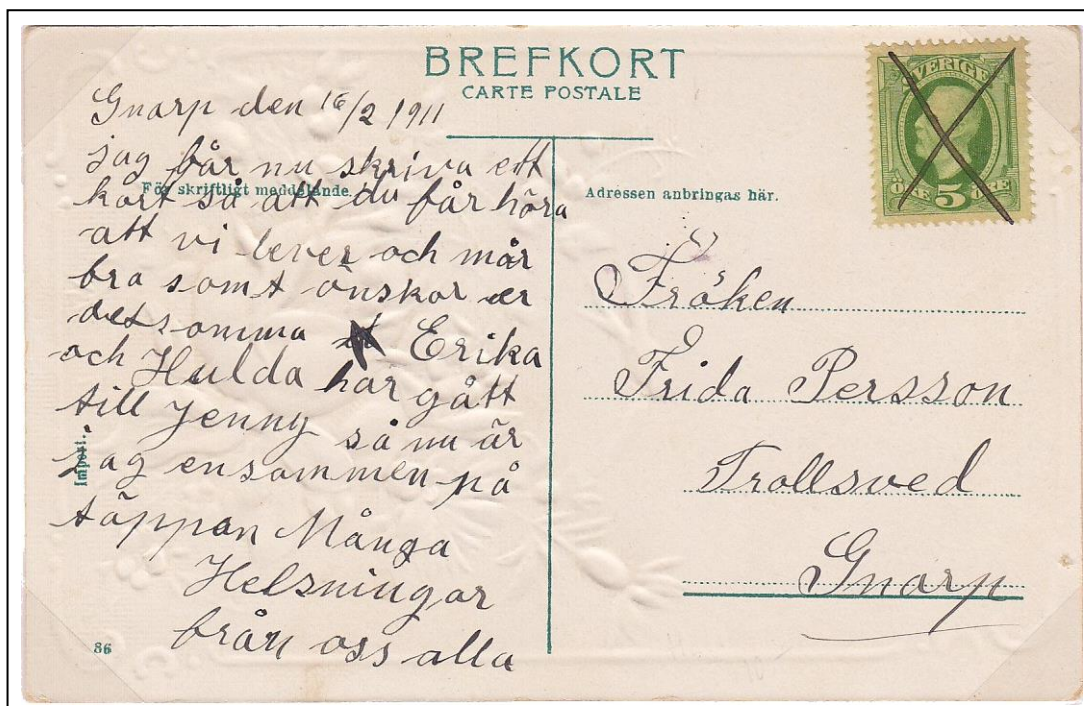 BREFKORT
CARTE POSTALE
Gnarp den 16/2 1911
jag får nu skriva ett
kort så att du får höra
att vi lever och mår
bra somt önskar er
detsamma Erika
och Hulda har gått
till Jenny så nu är
jag ensammen på
täppan Många
Helsningar
från oss alla
För skriftligt meddelande.
Import.
86
Adressen anbringas här.
SVERIGE
ÖRE 5 ÖRE
Fröken
Frida Persson
Trollsved
Gnarp